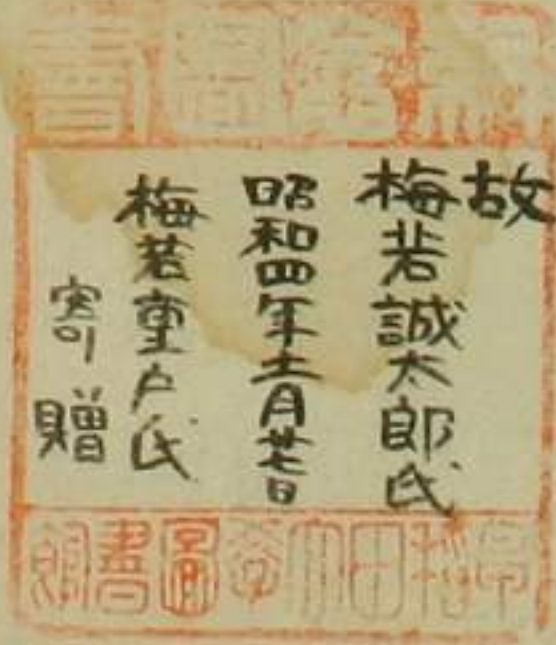 故
梅若誠太郎氏
昭和四年十一月廿七日
梅若重戸氏
寄贈
早稲田大学圖書館